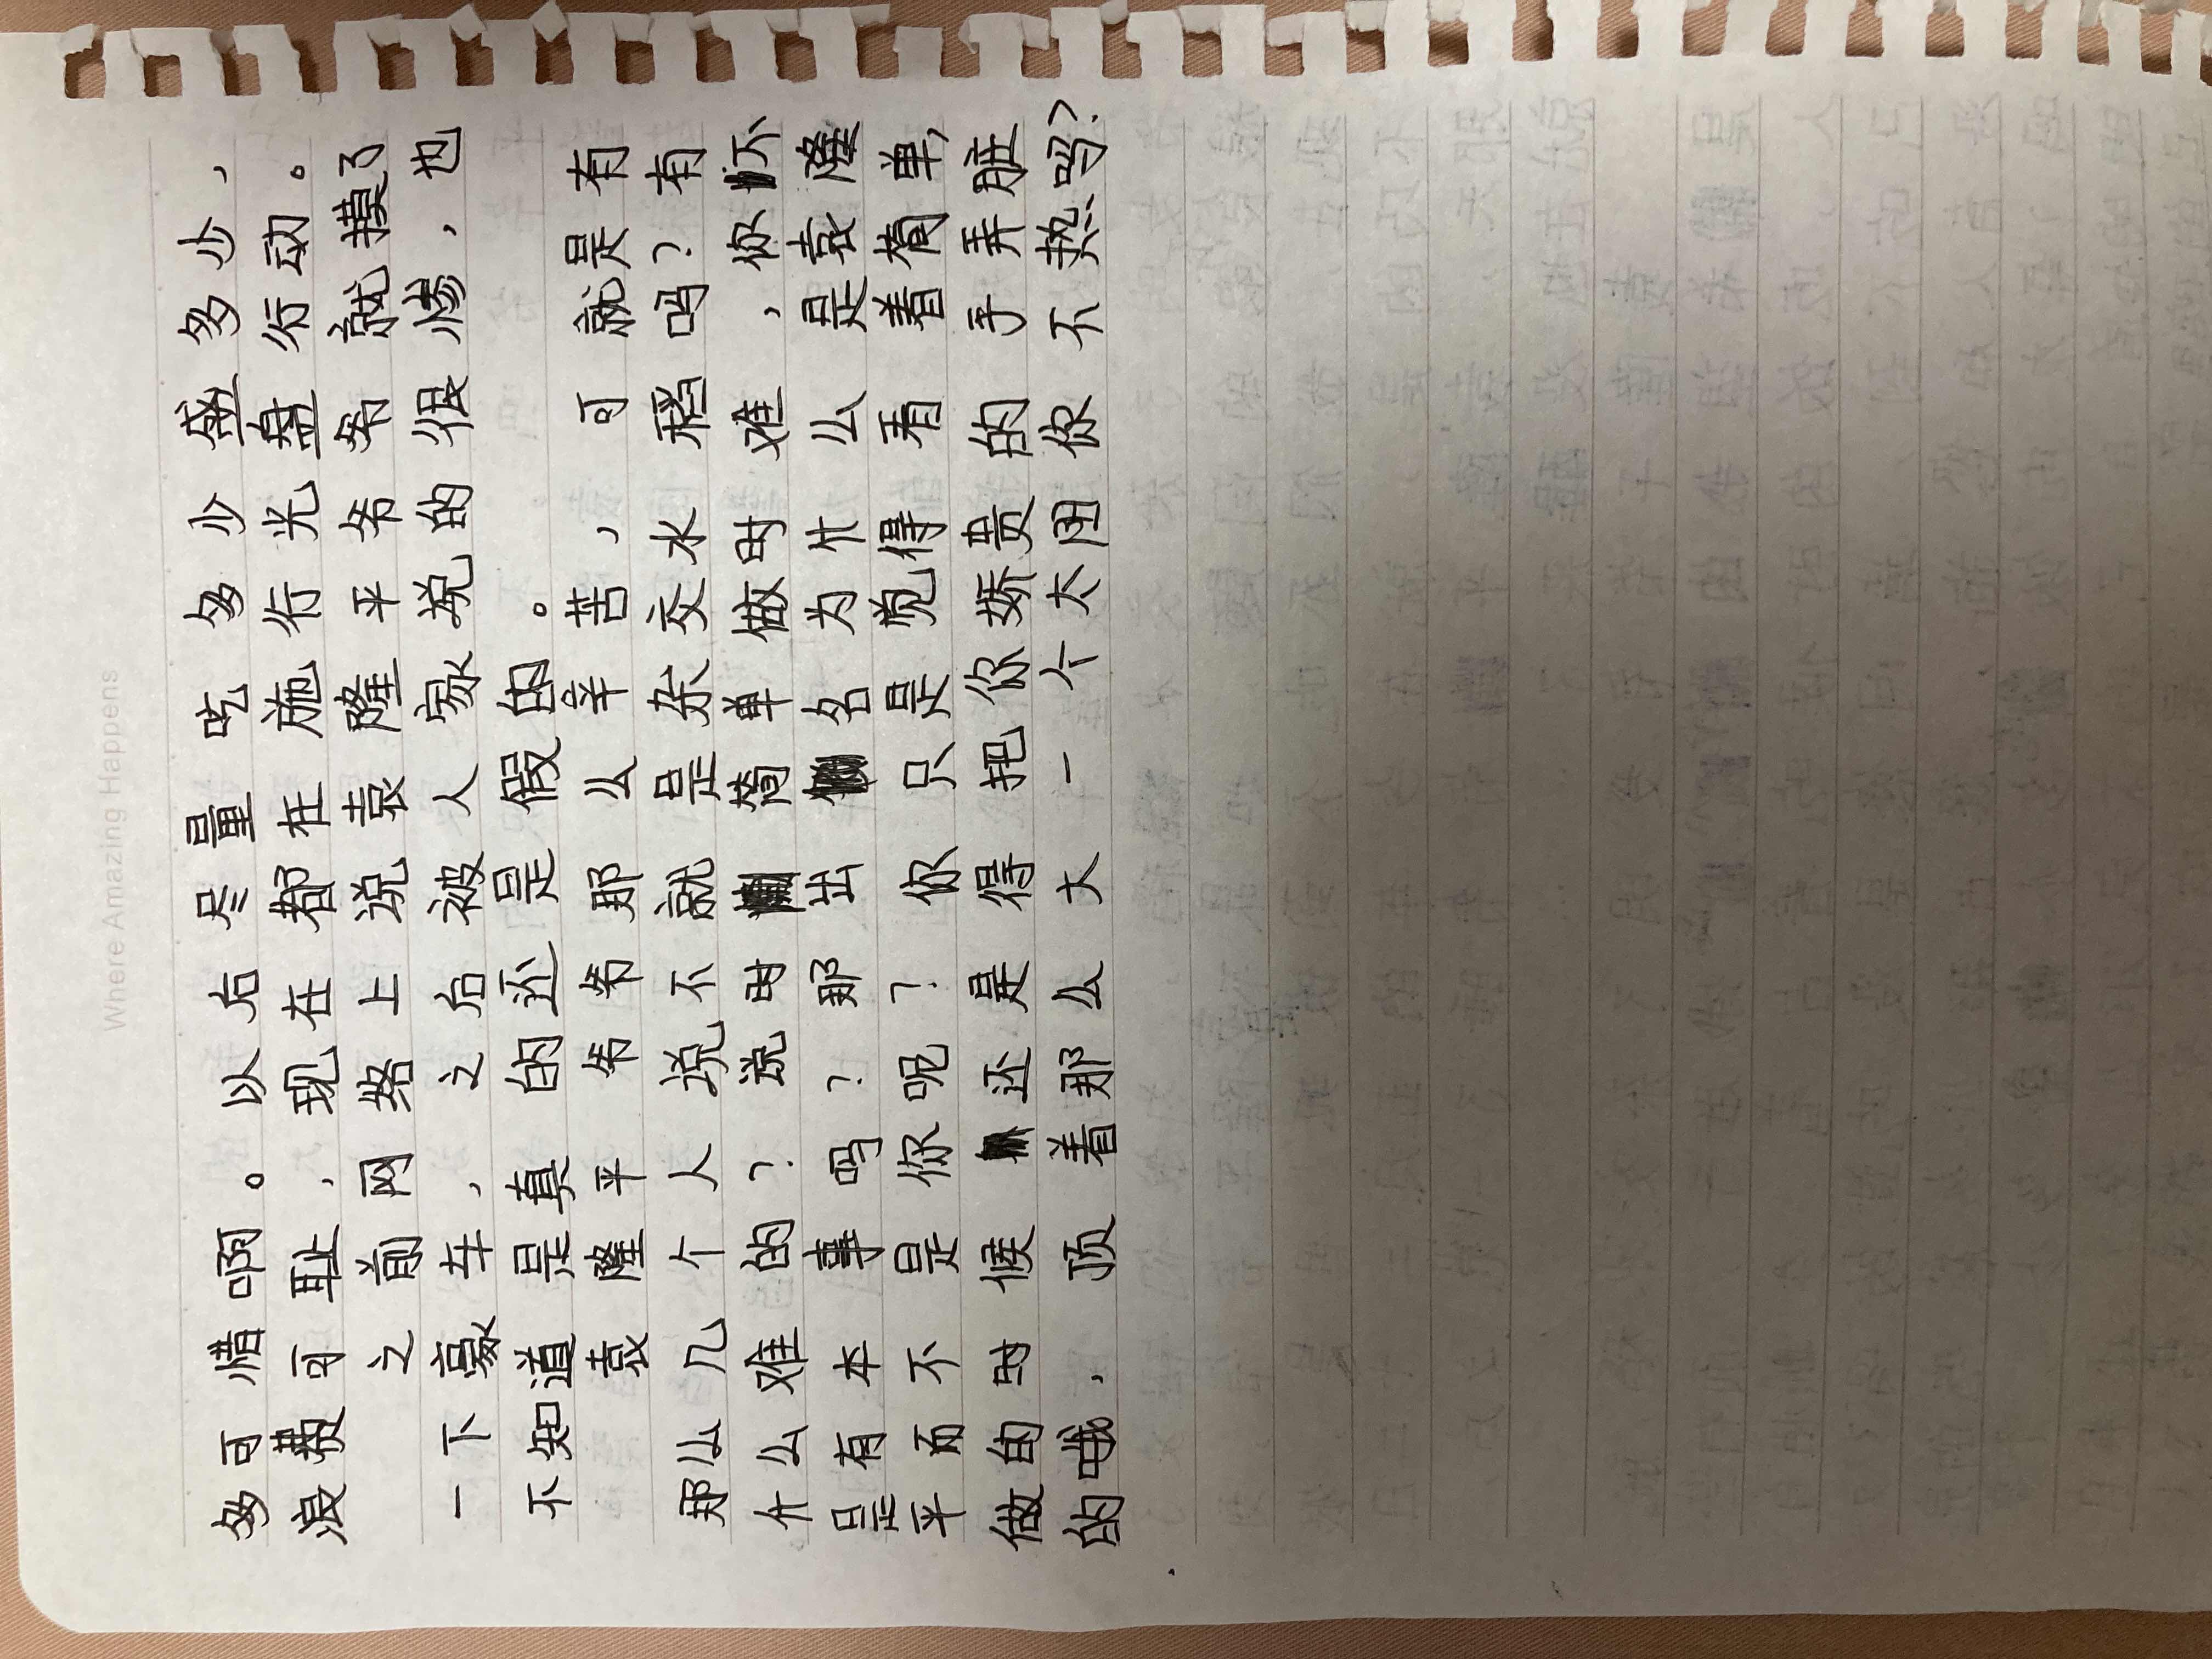 Where Amazing Happens
多可惜啊。以后尽量吃多少盛多少，
浪费可耻，现在都在施行光盘行动。
之前网络上说袁隆平爷爷就摸了
一下豪车，之后被人家说的很惨，也
不知道是真的还是假的。
袁隆平爷爷那么辛苦，可就是有
那么几个人说不就是杂交水稻吗？有
什么难的？说时简单做时难，你不
是有本事吗？那出名为什么是袁隆
平而不是你呢？你只是觉得看着简单，
做的时候还是得把你娇贵的手弄脏
的哦，顶着那么大一个太阳你不热吗？